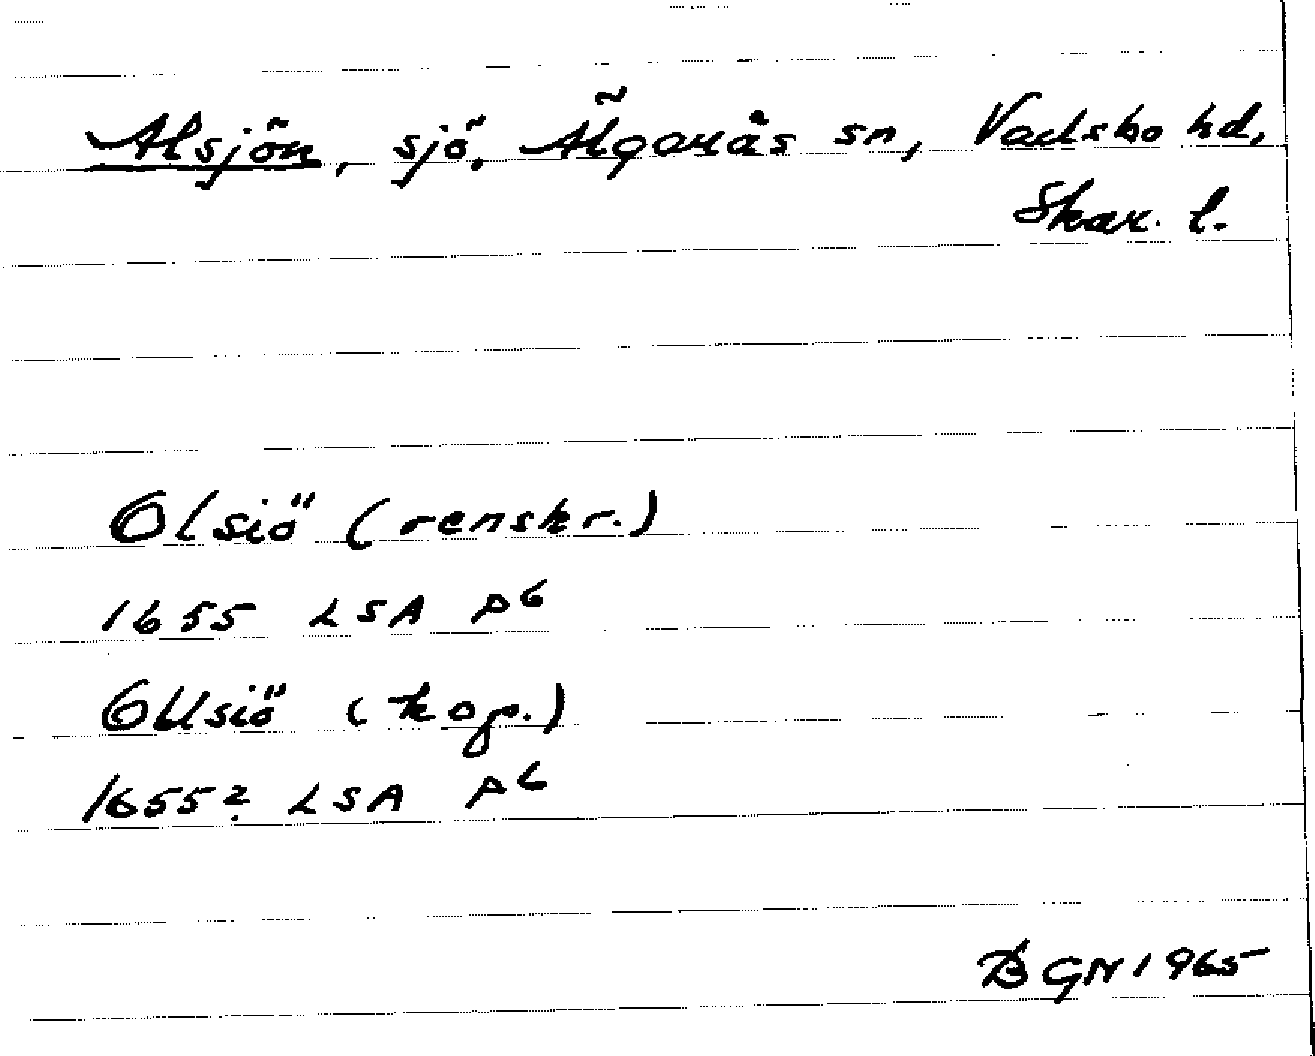 Alsjön, sjö, Älgarås sn, Vadsbo hd,
Skar. l.
Olsiö (renskr.)
1655 LSA P6
Ollsiö (kop.)
1655? LSA P6
BGN 1965